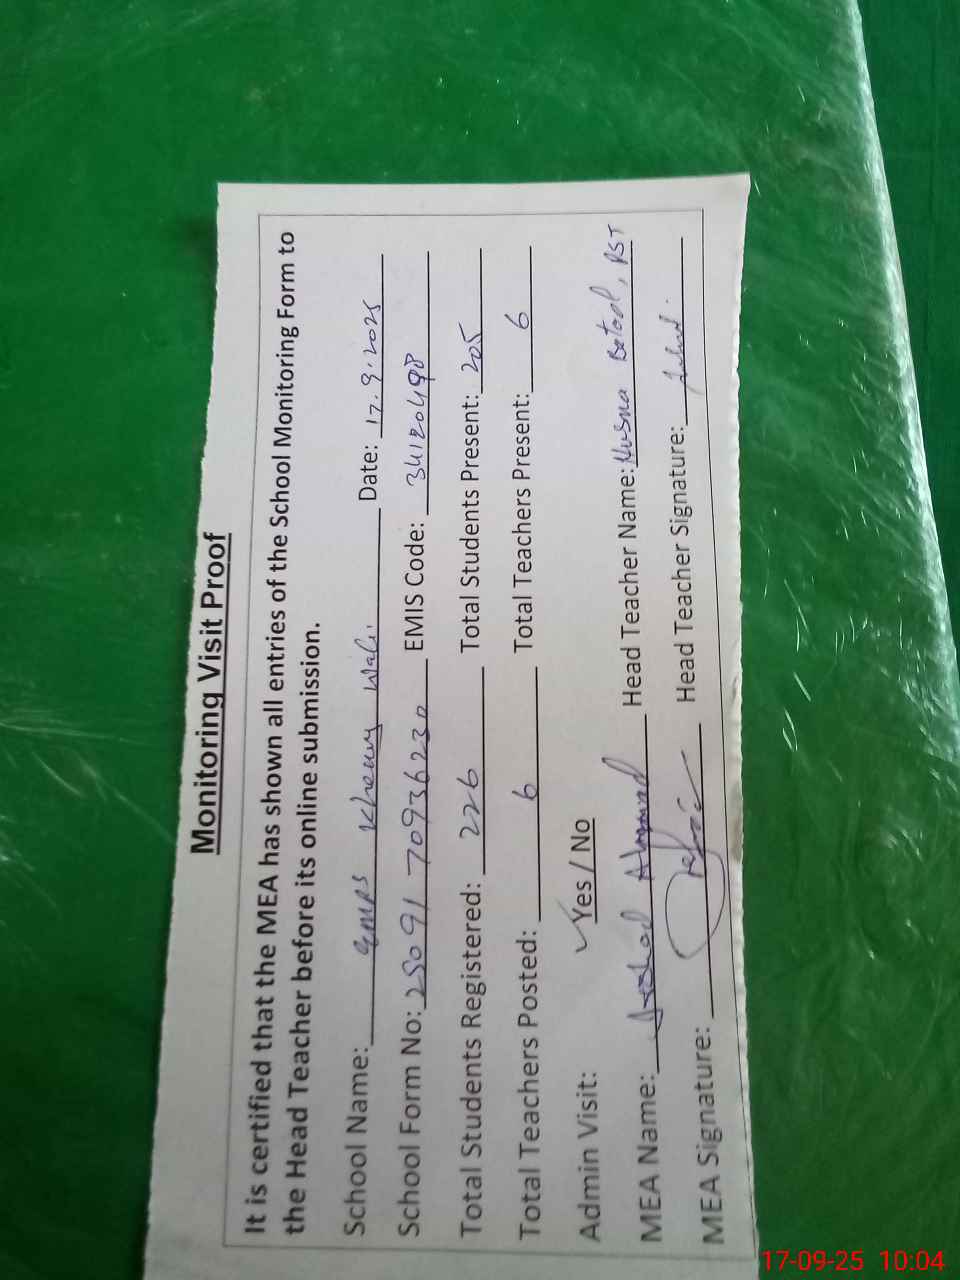 Monitoring Visit Proof
It is certified that the MEA has shown all entries of the School Monitoring Form to
the Head Teacher before its online submission.
School Name: GMPS Kheury Wali. Date: 17.9.2025
School Form No: 25091 70936230 EMIS Code: 34120498
Total Students Registered: 226 Total Students Present: 205
Total Teachers Posted: 6 Total Teachers Present: 6
Admin Visit: ✓Yes / No
MEA Name: Arshad Ahmad Head Teacher Name: Husna Betool, PST
MEA Signature: Head Teacher Signature:
17-09-25 10:04